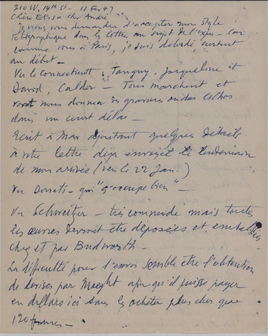 210 W. 14th St – 18 Fev 47
Chère Elisa – cher André
Je vous vous demander d'accepter mon style
télégraphique dans la lettre au sujet de l'expo – Car
comme vous à Paris, je suis débordé surtout
au début –
Vu le Connecticut : Tanguy, Jacqueline et
David, Calder – Tous marchent et
vont nous donner des gravures ou des lithos
dans un court délai –
Ecrit à Max ajoutant quelques détails
à votre lettre déjà envoyée le lendemain
de mon arrivée (vers le 22 Jan.)
Vu Donati – qui "s'occupe bien" –
Vu Schwetter – très comprende mais toutes
les œuvres devront être déposées et emballées
chez et par Budworth –
La difficulté pour l'envoi semble être l'obtention
de devises par Maeght afin qu'il puisse payer
en dollars ici sans les acheter plus cher que
120 francs –